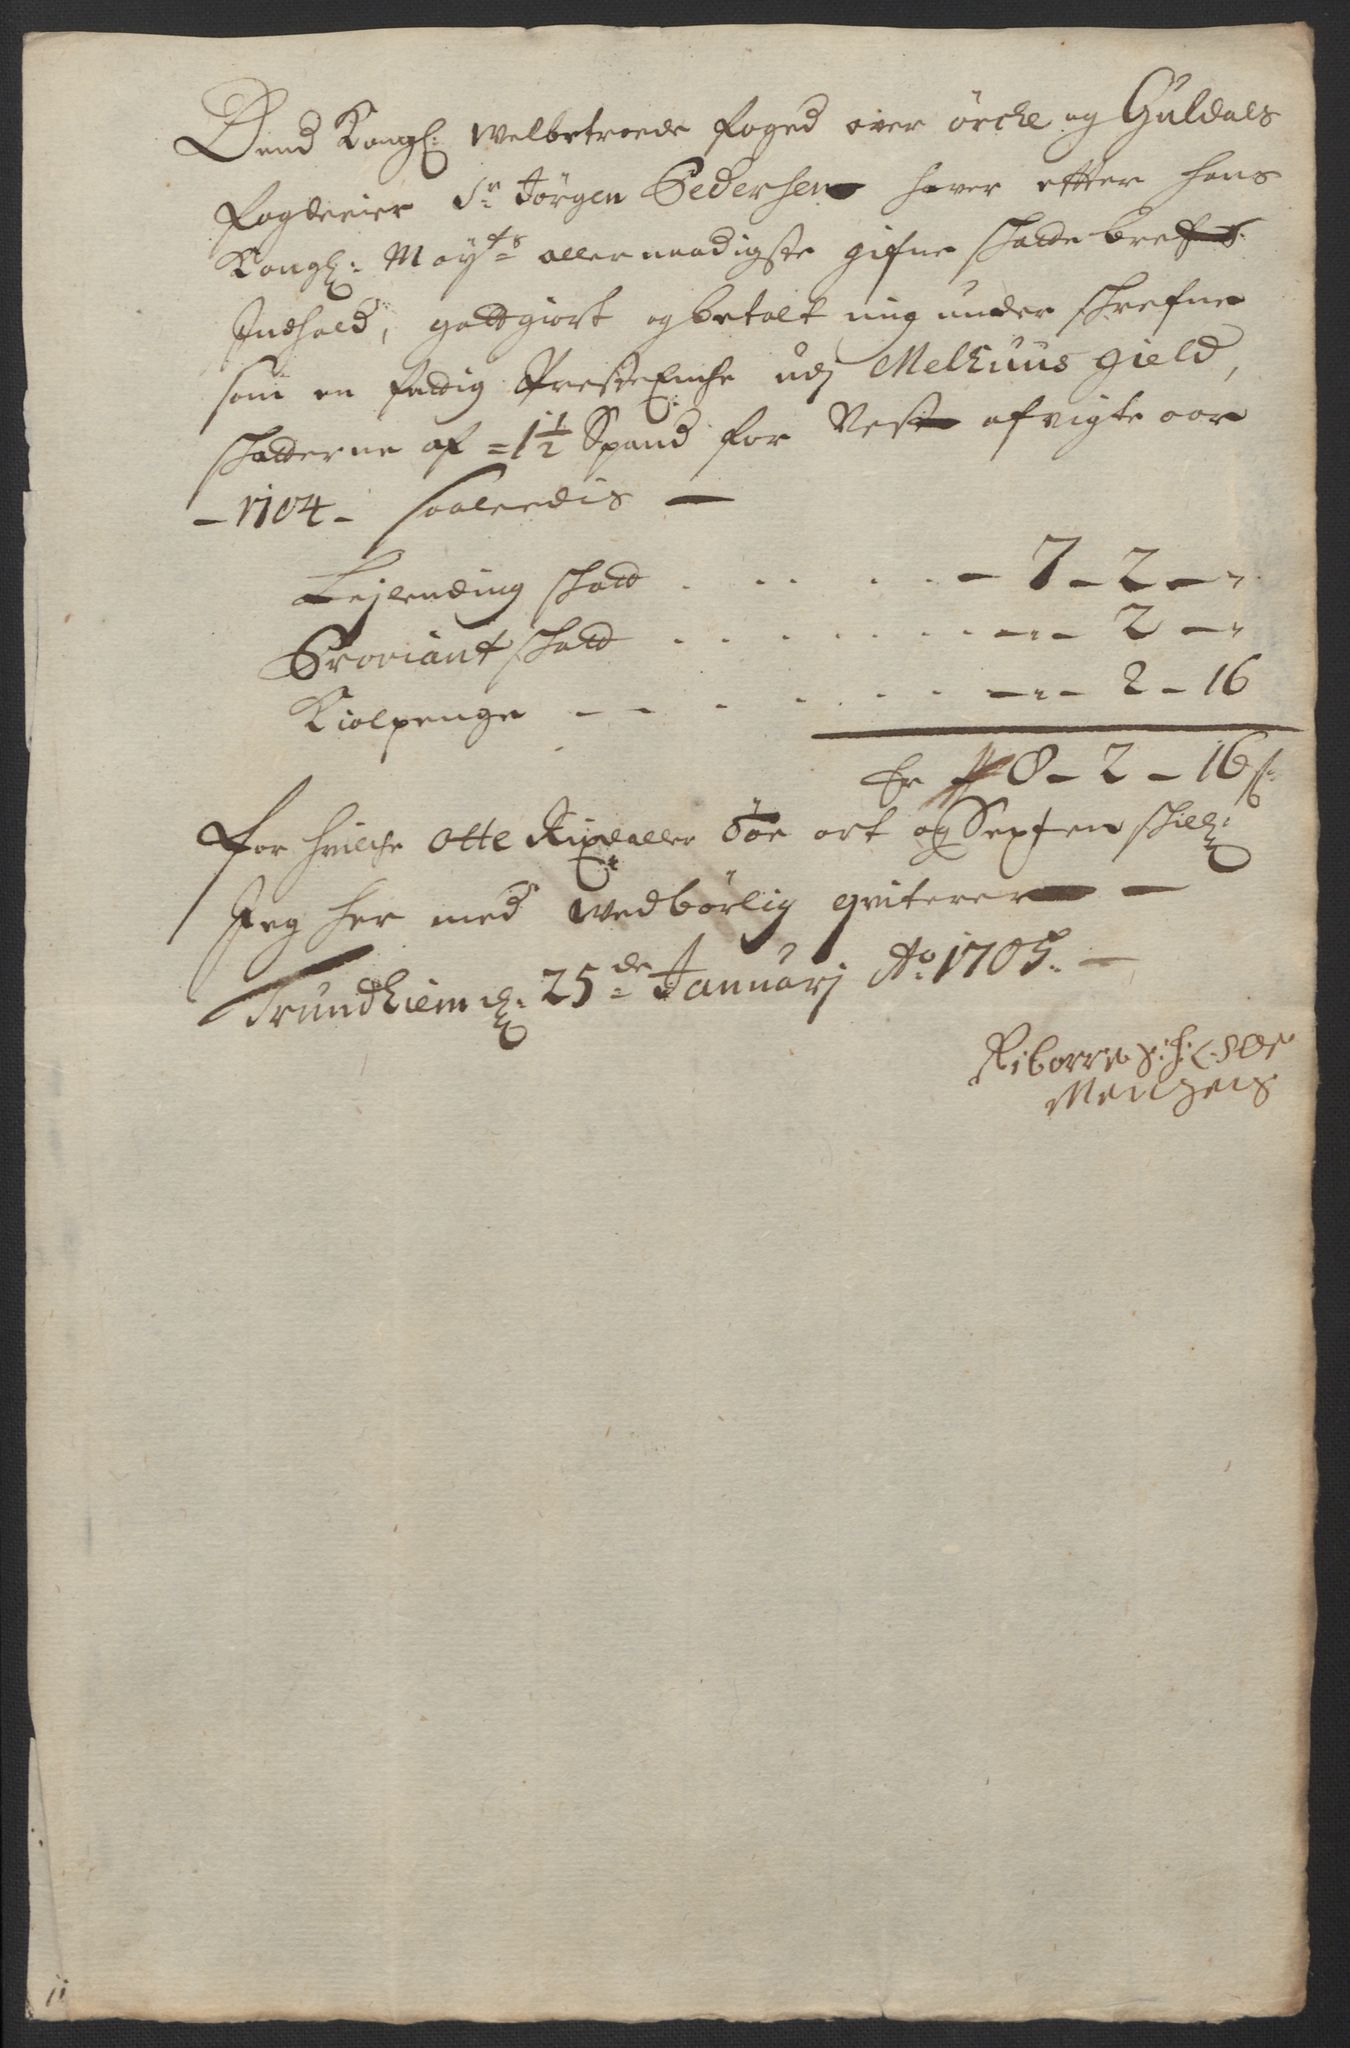 Dend Kongl: Welbetroede foged over örche og Guldals
fogderier Sr Jörgen Pedersen haver efter hans
Kongl: Mayts allernaadigste gifne schatte brefs
Indhold, gottgiort og betalt mig under schrefne
som en fattig Præste Enche udj Melhuus gield,
schatterne af =1½ Spand for Nest afvigte aar
- 1704 - saaleedis -
Lejlending schatt . . . . . - 7 - 2 - "
Proviant schatt . . . . . . . - " - 2 - "
Kiolpenge - - . . . . - " - 2 - 16
Er 8 - 2 - 16 s:
for hvilche otte Rixdaller töe ort og Sexten schill:
Jeg her med wedbörlig qviterer -
Trundhiem d: 25de Januarj Ao 1705. -